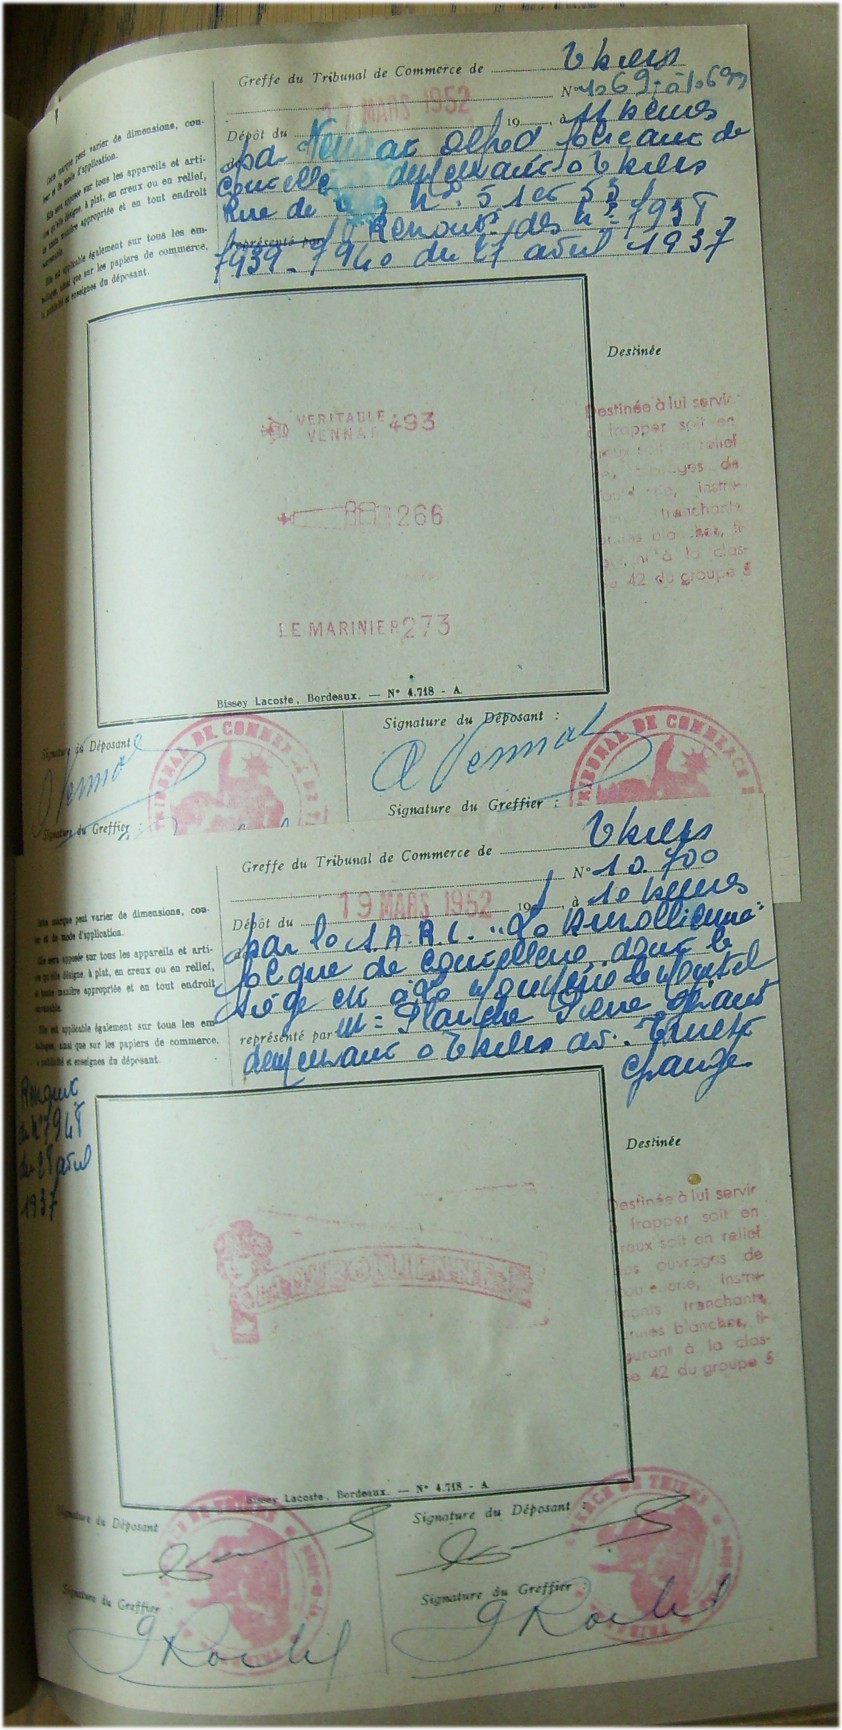 Greffe du Tribunal de Commerce de Thiers
17 MARS 1952
Dépôt du 19 , à 11 heures
par Vennat Alfred fabricant de
demeurant à Thiers
Rue de n°s 51 et 53
représenté par Renouvt des n°s 7938
7939 - 7940 du 27 avril 1937
Cette marque peut varier de dimensions, cou-
leur et de mode d'application.
Elle sera apposée sur tous les appareils et arti-
cles qu'elle désigne, à plat, en creux ou en relief,
de toute manière appropriée et en tout endroit
convenable.
Elle est applicable également sur tous les em-
ballages, ainsi que sur les papiers de commerce,
de publicité et enseignes du déposant.
VERITABLE 493
VENNAT
266
LE MARINIER 273
Bissey Lacoste, Bordeaux. — N° 4.718 - A.
Destinée
Destinée à lui servir
à frapper soit en
creux soit en relief
ouvrages de
instru-
tranchants,
armes blanches, fi-
gurant à la clas-
se 42 du groupe 5
Signature du Déposant
A Vennat
Signature du Greffier :
TRIBUNAL DE COMMERCE DE
Signature du Déposant :
A Vennat
Signature du Greffier :
TRIBUNAL DE COMMERCE
Greffe du Tribunal de Commerce de Thiers
N° 10.700
19 MARS 1952
Dépôt du 19 , à 10 heures
par la S.A.R.L. "La Durollienne"
de coutellerie dont le
siège est à La Monnerie le Montel
représenté par Mr Planche Pierre
demeurant à Thiers av.
Cette marque peut varier de dimensions, cou-
leur et de mode d'application.
Elle sera apposée sur tous les appareils et arti-
cles qu'elle désigne, à plat, en creux ou en relief,
de toute manière appropriée et en tout endroit
convenable.
Elle est applicable également sur tous les em-
ballages, ainsi que sur les papiers de commerce,
de publicité et enseignes du déposant.
du n° 7948
du 28 avril
1937
LA DUROLLIENNE
Bissey Lacoste, Bordeaux. — N° 4.718 - A
Destinée
Destinée à lui servir
à frapper soit en
creux soit en relief
ses ouvrages de
coutellerie, instru-
ments tranchants,
armes blanches, fi-
gurant à la clas-
se 42 du groupe 5
Signature du Déposant
Signature du Greffier :
Signature du Déposant :
Signature du Greffier :